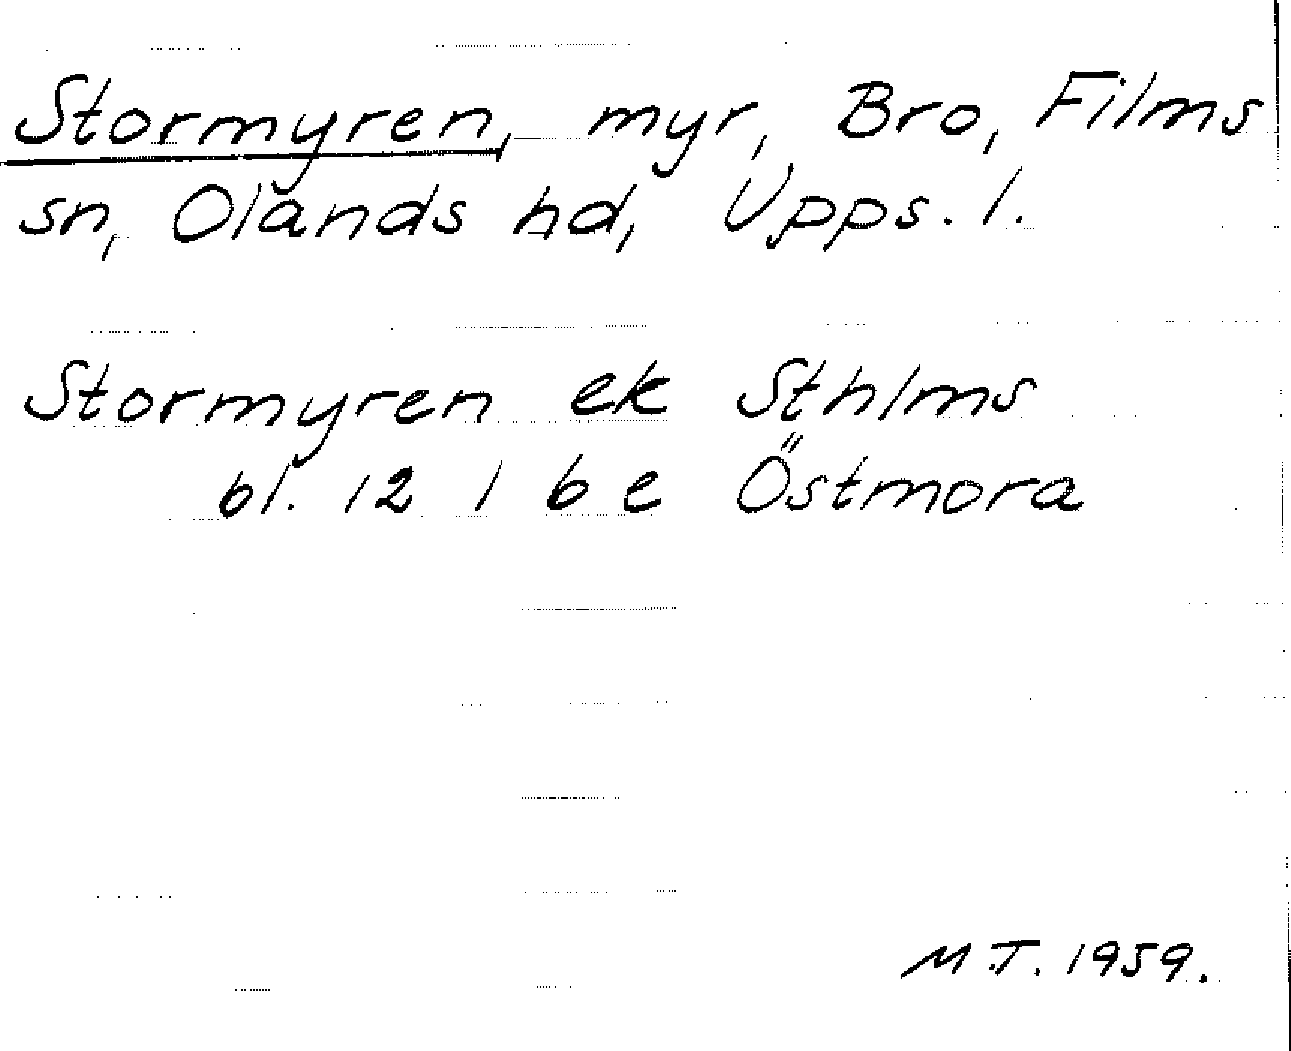 Stormyren, myr, Bro, Films
sn, Olands hd, Upps. l.
Stormyren ek Sthlms
bl. 12 1 6 e Östmora
M.T. 1959.